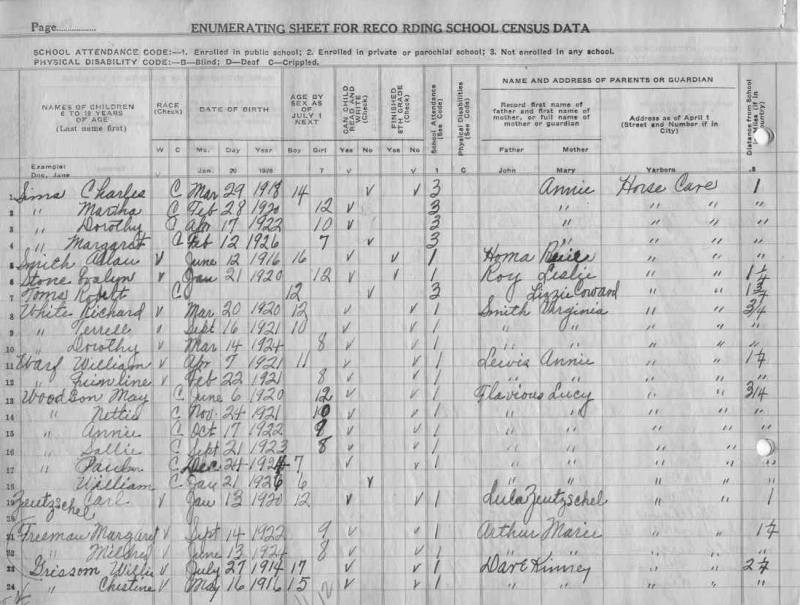 Page
ENUMERATING SHEET FOR RECO RDING SCHOOL CENSUS DATA
SCHOOL ATTENDANCE CODE:—1. Enrolled in public school; 2. Enrolled in private or parochial school; 3. Not enrolled in any school.
PHYSICAL DISABILITY CODE:—B—Blind; D—Deaf C—Crippled.
NAMES OF CHILDREN 6 TO 18 YEARS OF AGE (Last name first) RACE (Check) DATE OF BIRTH AGE BY SEX AS OF JULY 1 NEXT CAN CHILD READ AND WRITE (Check) FINISHED 8TH GRADE (Check) School Attendance (See Code) Physical Disabilities (See Code) NAME AND ADDRESS OF PARENTS OR GUARDIAN Distance from School
Record first name of father and first name of mother, or full name of mother or guardian Address as of April 1 (Street and Number if in City)
W C Mo. Day Year Boy Girl Yes No Yes No Father Mother
Example: Doe, Jane Jan. 20 1926 7 v v 1 C John Mary Yarboro .8
1 Sims Charles C Mar 29 1918 14 v v 3 Annie Horse Cave 1
2 " Martha C Feb 28 1920 12 v 3 " " " "
3 " Dorothy C Apr 17 1922 10 v 3 " " " "
4 " Margaret C Feb 12 1926 7 v 3 " " " "
5 Smith v June 12 1916 16 v v 1 Homa " " "
6 Stone Evalyn v Jan 21 1920 12 v v 1 Roy Leslie " " 1 1/4
7 Toms Robert C 12 v 3 Lizzie Coward " "
8 White Richard v Mar 20 1920 12 v v 1 Smith Virginia " " 3/4
9 " Terrell v Sept 16 1921 10 v v 1 " " " " "
10 " Dorothy v Mar 14 1924 8 v v 1 " " " " "
11 Warf William v Apr 7 1921 11 v v 1 Lewis Annie " "
12 " v Feb 22 1921 8 v v 1 " " " " "
13 Woodson May C June 6 1920 12 v v 1 Flavious Lucy " " 3/4
14 " Nettie C Nov. 24 1921 10 v v 1 " " " " "
15 " Annie C Oct 17 1922 9 v v 1 " " " "
16 " Sallie C Sept 21 1923 8 v v 1 " " " "
17 " C Dec 24 1924 7 v v 1 " " " " "
18 " William C Jan 21 1926 6 v 1 " " " " "
19 Zeutzschel Carl v Jan 13 1920 12 v v 1 Lula Zeutzschel " " 1
20
21 Freeman Margaret v Sept 14 1922 9 v v 1 Arthur Marie " "
22 " Mildred v June 13 1924 8 v v 1 " " " " "
23 Grissom Willie v July 27 1914 17 v v 1 Dave Kinney " "
24 " Chestine v May 16 1916 15 v v 1 " " " " "
12